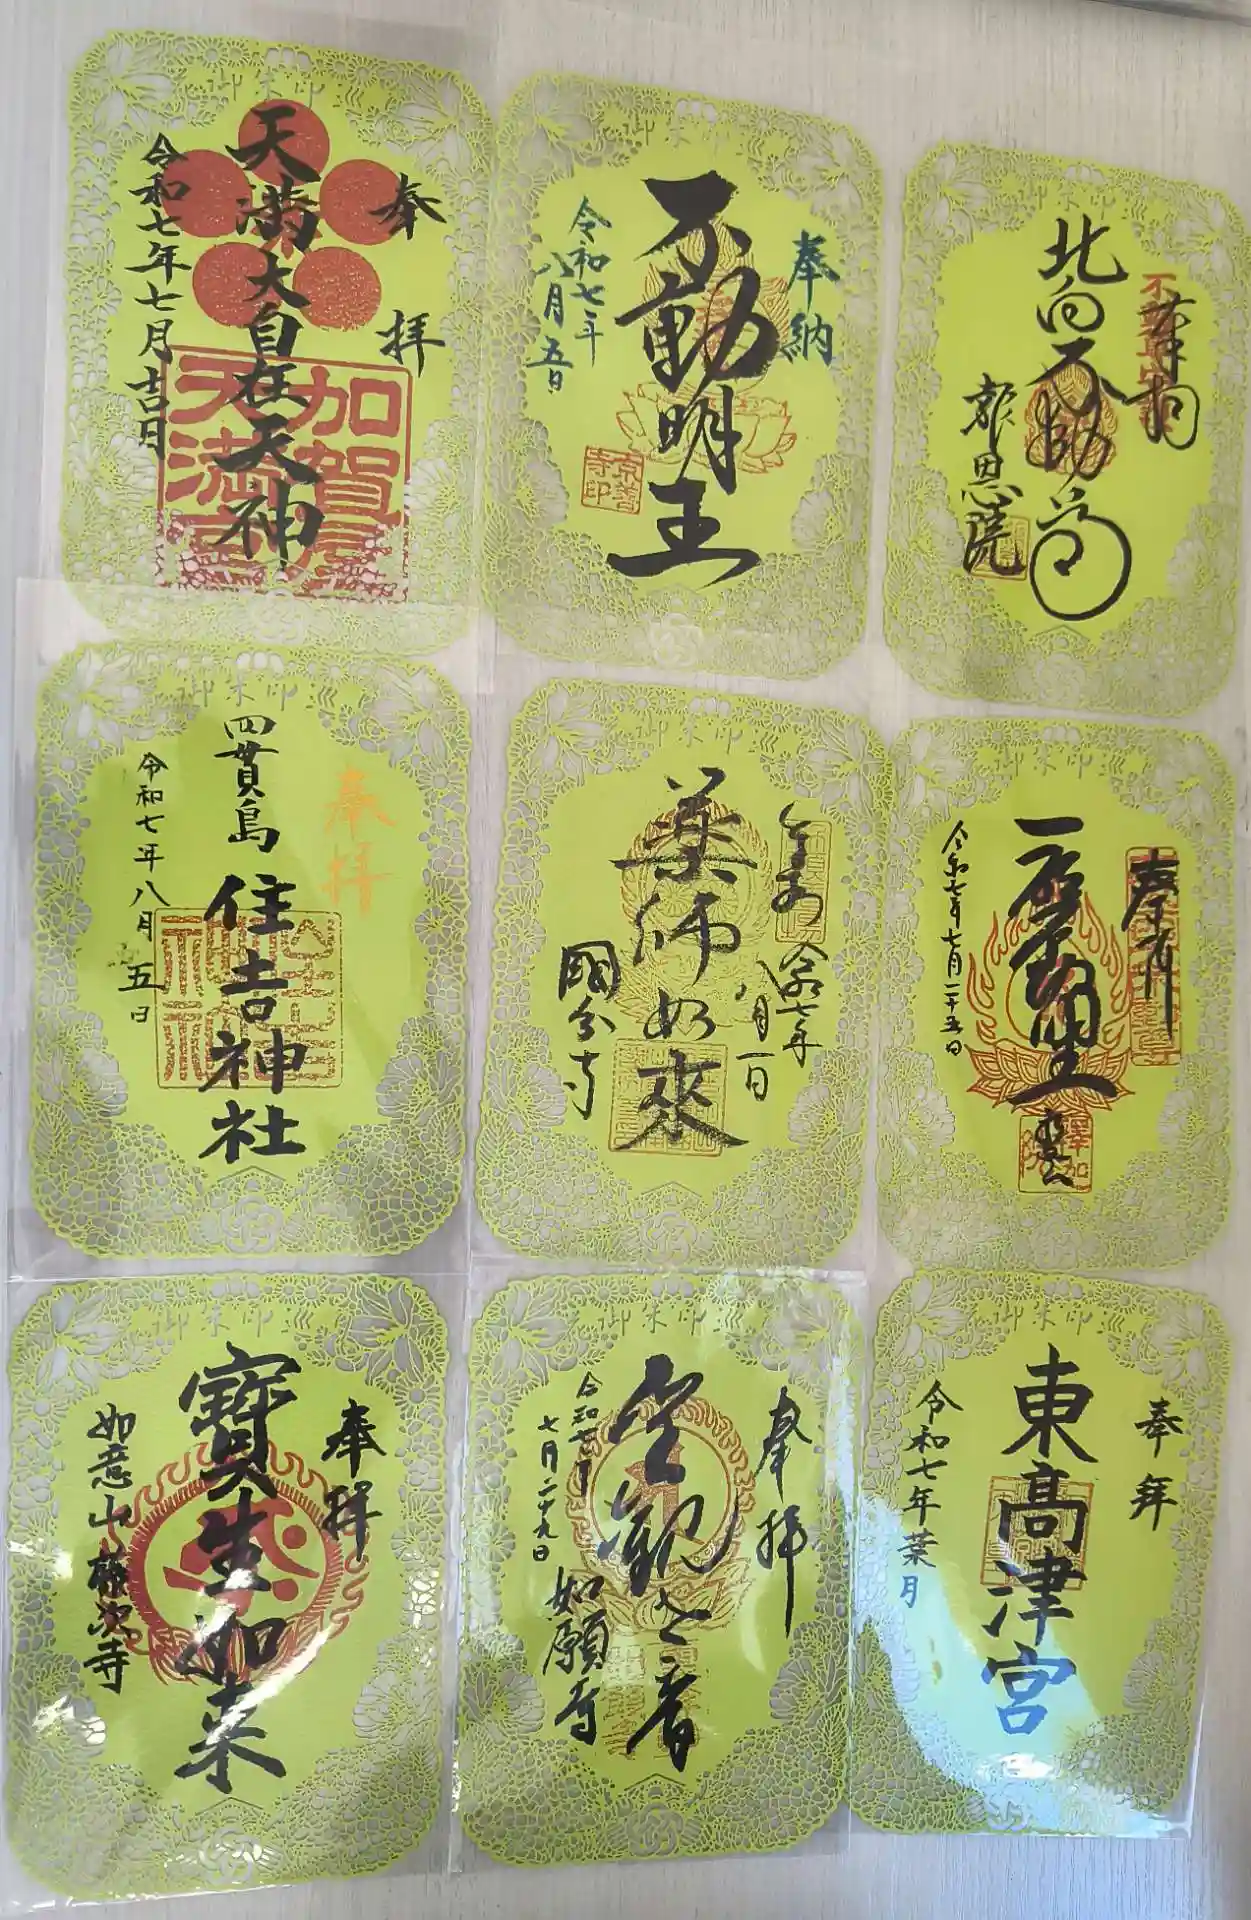 御朱印
奉拝
天満大自在天神
令和七年七月吉日
御朱印
奉納
不動明王
令和七年
八月五日
御朱印
奉拝
北向不動尊
報恩院
御朱印
奉拝
四貫島
住吉神社
令和七年八月五日
御朱印
令和七年
八月一日
薬師如來
國分寺
御朱印
奉拝
令和七年七月二十五日
御朱印
奉拝
寶生如来
如意山藤次寺
御朱印
奉拝
聖観世音
令和七年
七月二十九日
如願寺
御朱印
奉拜
東高津宮
令和七年葉月